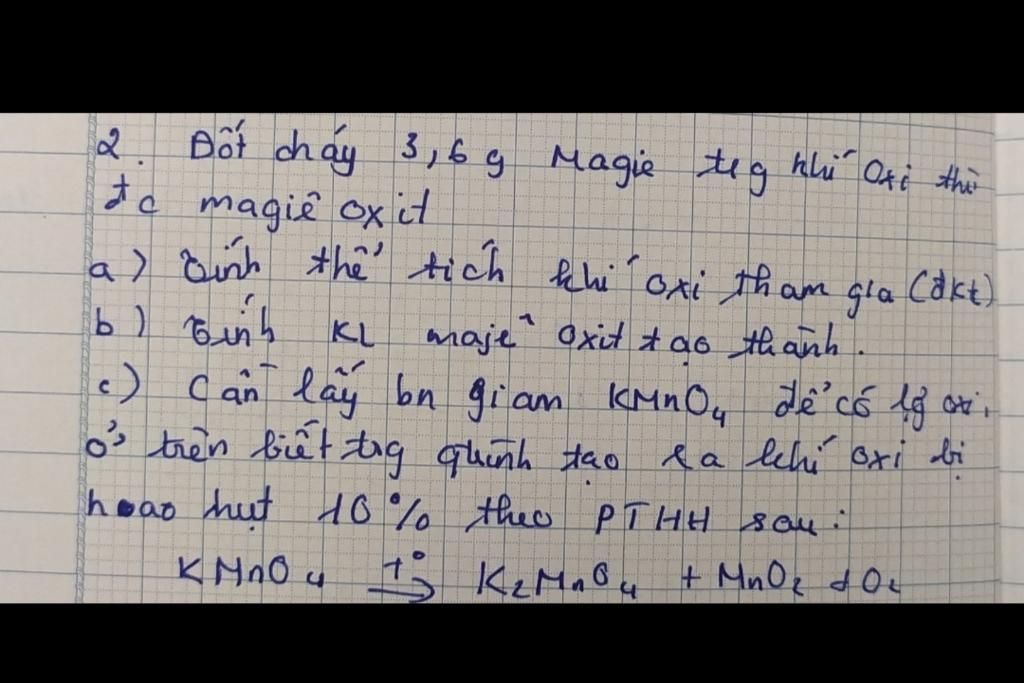 2. Đốt cháy 3,6 g Magie trg khí Oxi thì
đc magiê oxit
a) Tính thể tích khí oxi tham gia (đkt)
b) Tính KL majê oxit tạo thành.
c) Cần lấy bn giam KMnO4 để có lg oxi
ở trên biết trg quình tạo ra khí oxi bị
hoao hụt 10% theo PTHH sau:
KMnO4 t° → K2MnO4 + MnO2 + O2